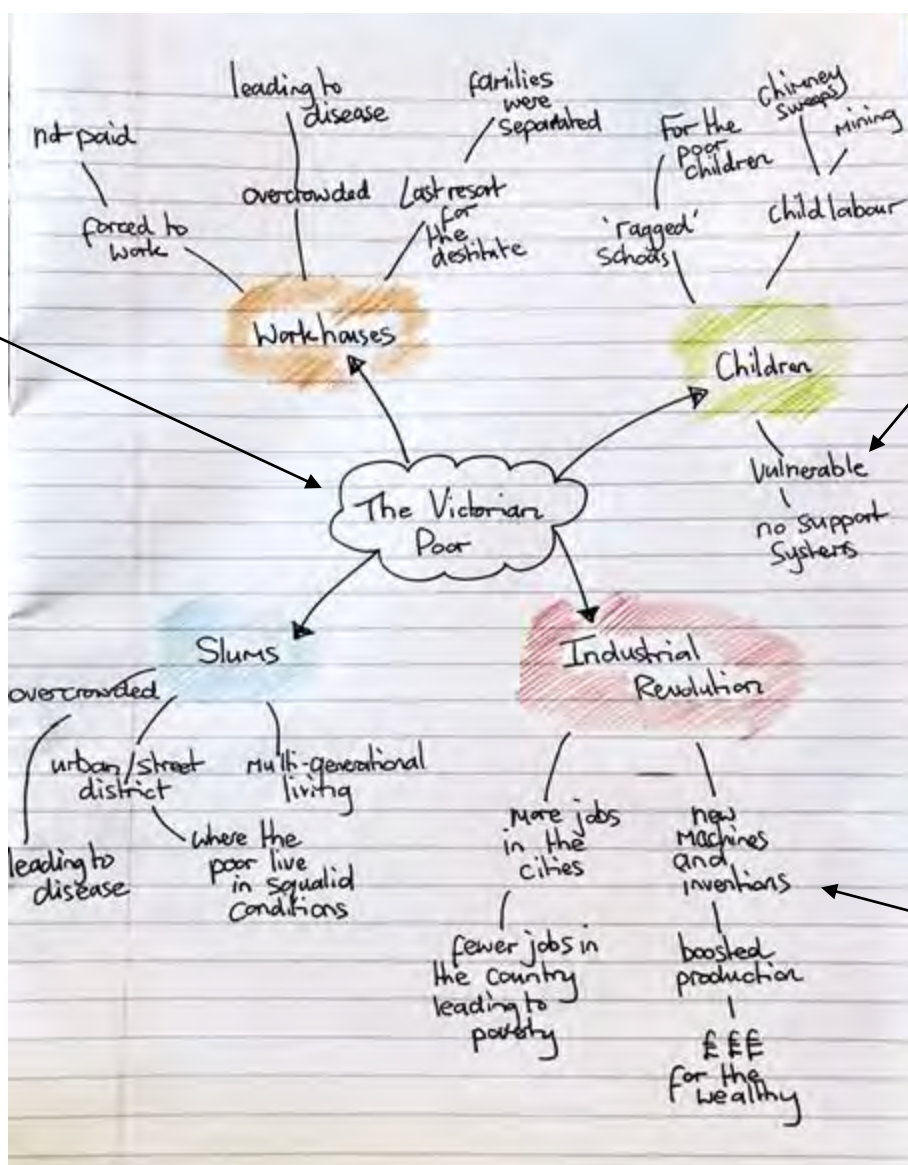 leading to
disease
families
were
separated
not paid
overcrowded
Last resort
for
the
destitute
forced to
work
Workhouses
For the
poor
children
chimney
sweeps
mining
'ragged'
schools
child labour
Children
Vulnerable
no support
systems
The Victorian
Poor
Slums
overcrowded
leading to
disease
urban/street
district
where the
poor live
in squalid
conditions
Multi-generational
living
Industrial
Revolution
More jobs
in the
cities
fewer jobs in
the country
leading to
poverty
new
machines
and
inventions
boosted
production
£££
for the
wealthy